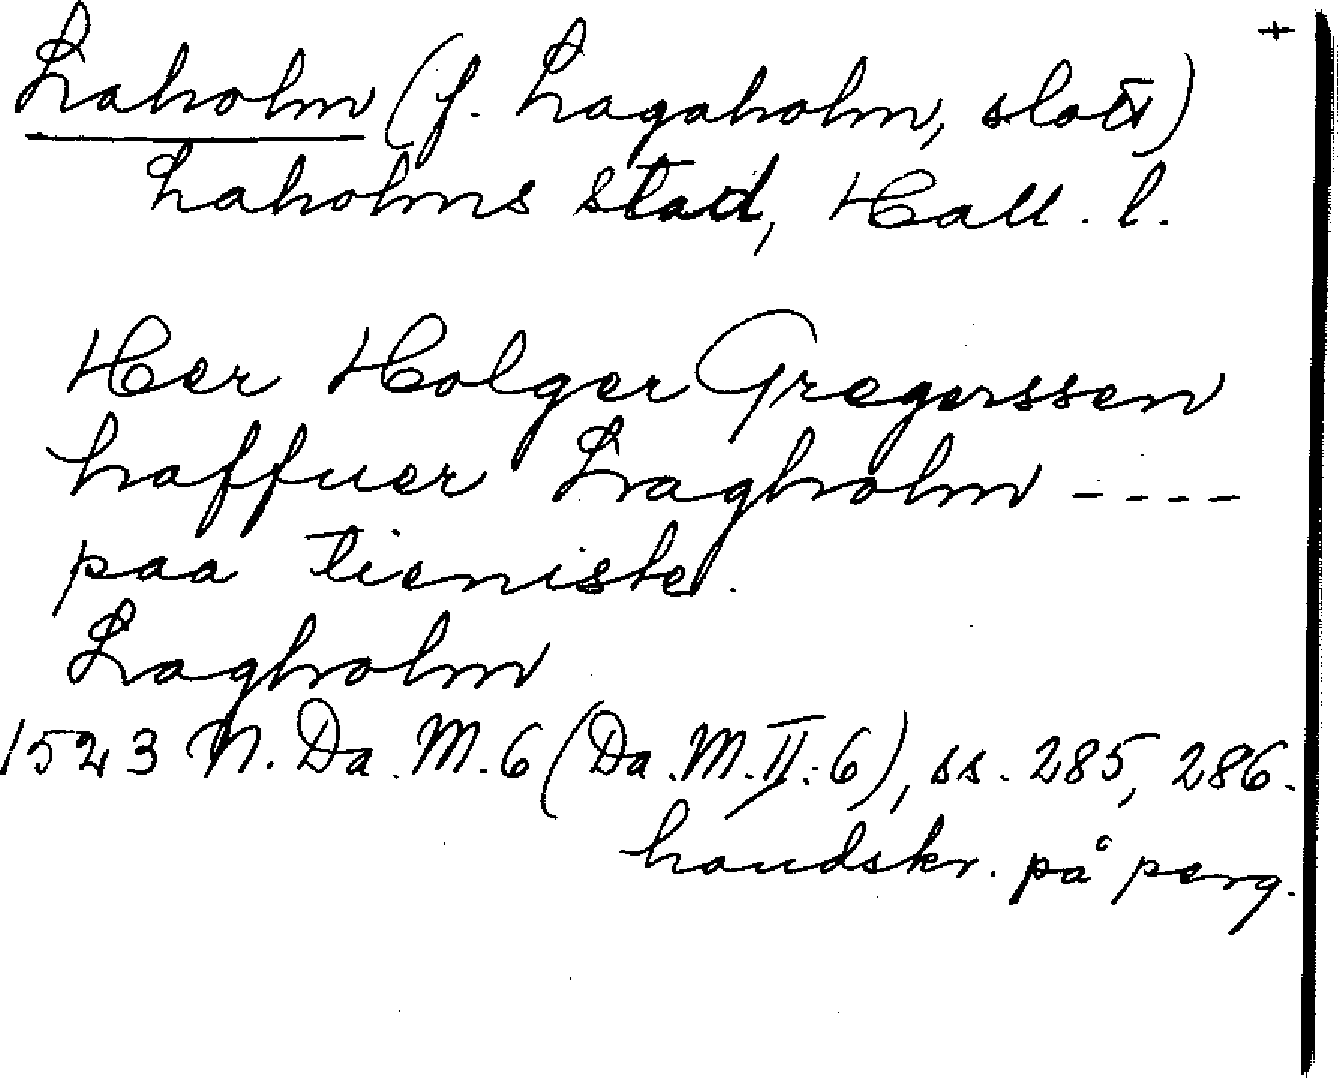 +
Laholm (f. Lagaholm, slott)
Laholms stad, Hall. l.
Her Holger Gregerssen
haffuer Lagholm ----
paa tieniste.
Lagholm
1523 N. Da. M. 6 (Da. M. II. 6), ss. 285, 286.
handskr. på perg.